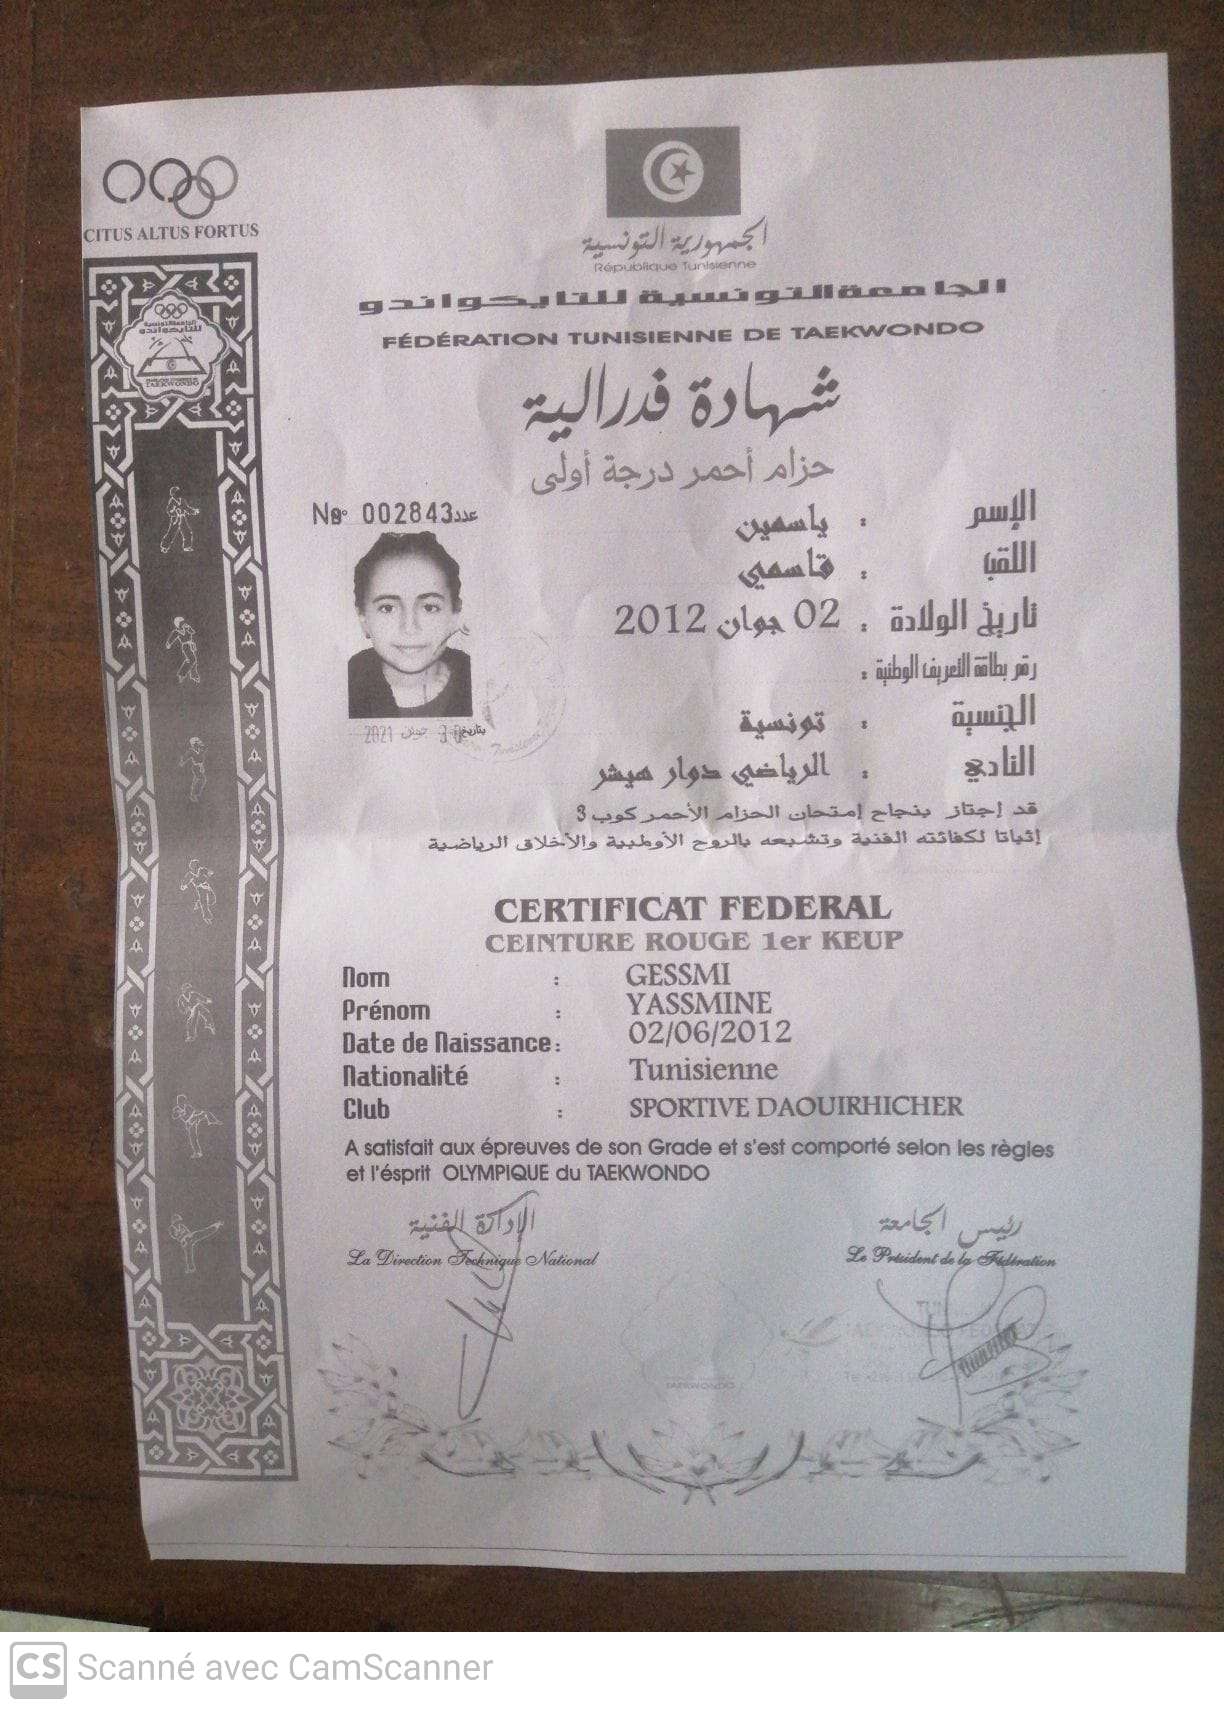 CITUS ALTUS FORTUS
الجمهورية التونسية
République Tunisienne
الجامعة التونسية للتايكواندو
FÉDÉRATION TUNISIENNE DE TAEKWONDO
شهادة فدرالية
حزام أحمر درجة أولى
No 002843 عدد
الإسم : ياسمين
اللقب : قاسمي
تاريخ الولادة : 02 جوان 2012
رقم بطاقة التعريف الوطنية :
الجنسية : تونسية
النادي : الرياضي دوار هيشر
بتاريخ 30 2021
قد إجتاز بنجاح إمتحان الحزام الأحمر كوب 3
إثباتا لكفائته الفنية وتشبعه بالروح الأوطبية والأخلاق الرياضية
CERTIFICAT FEDERAL
CEINTURE ROUGE 1er KEUP
Nom : GESSMI
Prénom : YASSMINE
Date de Naissance : 02/06/2012
Nationalité : Tunisienne
Club : SPORTIVE DAOUIRHICHER
A satisfait aux épreuves de son Grade et s'est comporté selon les règles
et l'ésprit OLYMPIQUE du TAEKWONDO
الإدارة الفنية
La Direction Technique National
رئيس الجامعة
Le Président de la Fédération
TAEKWONDO
CS Scanné avec CamScanner